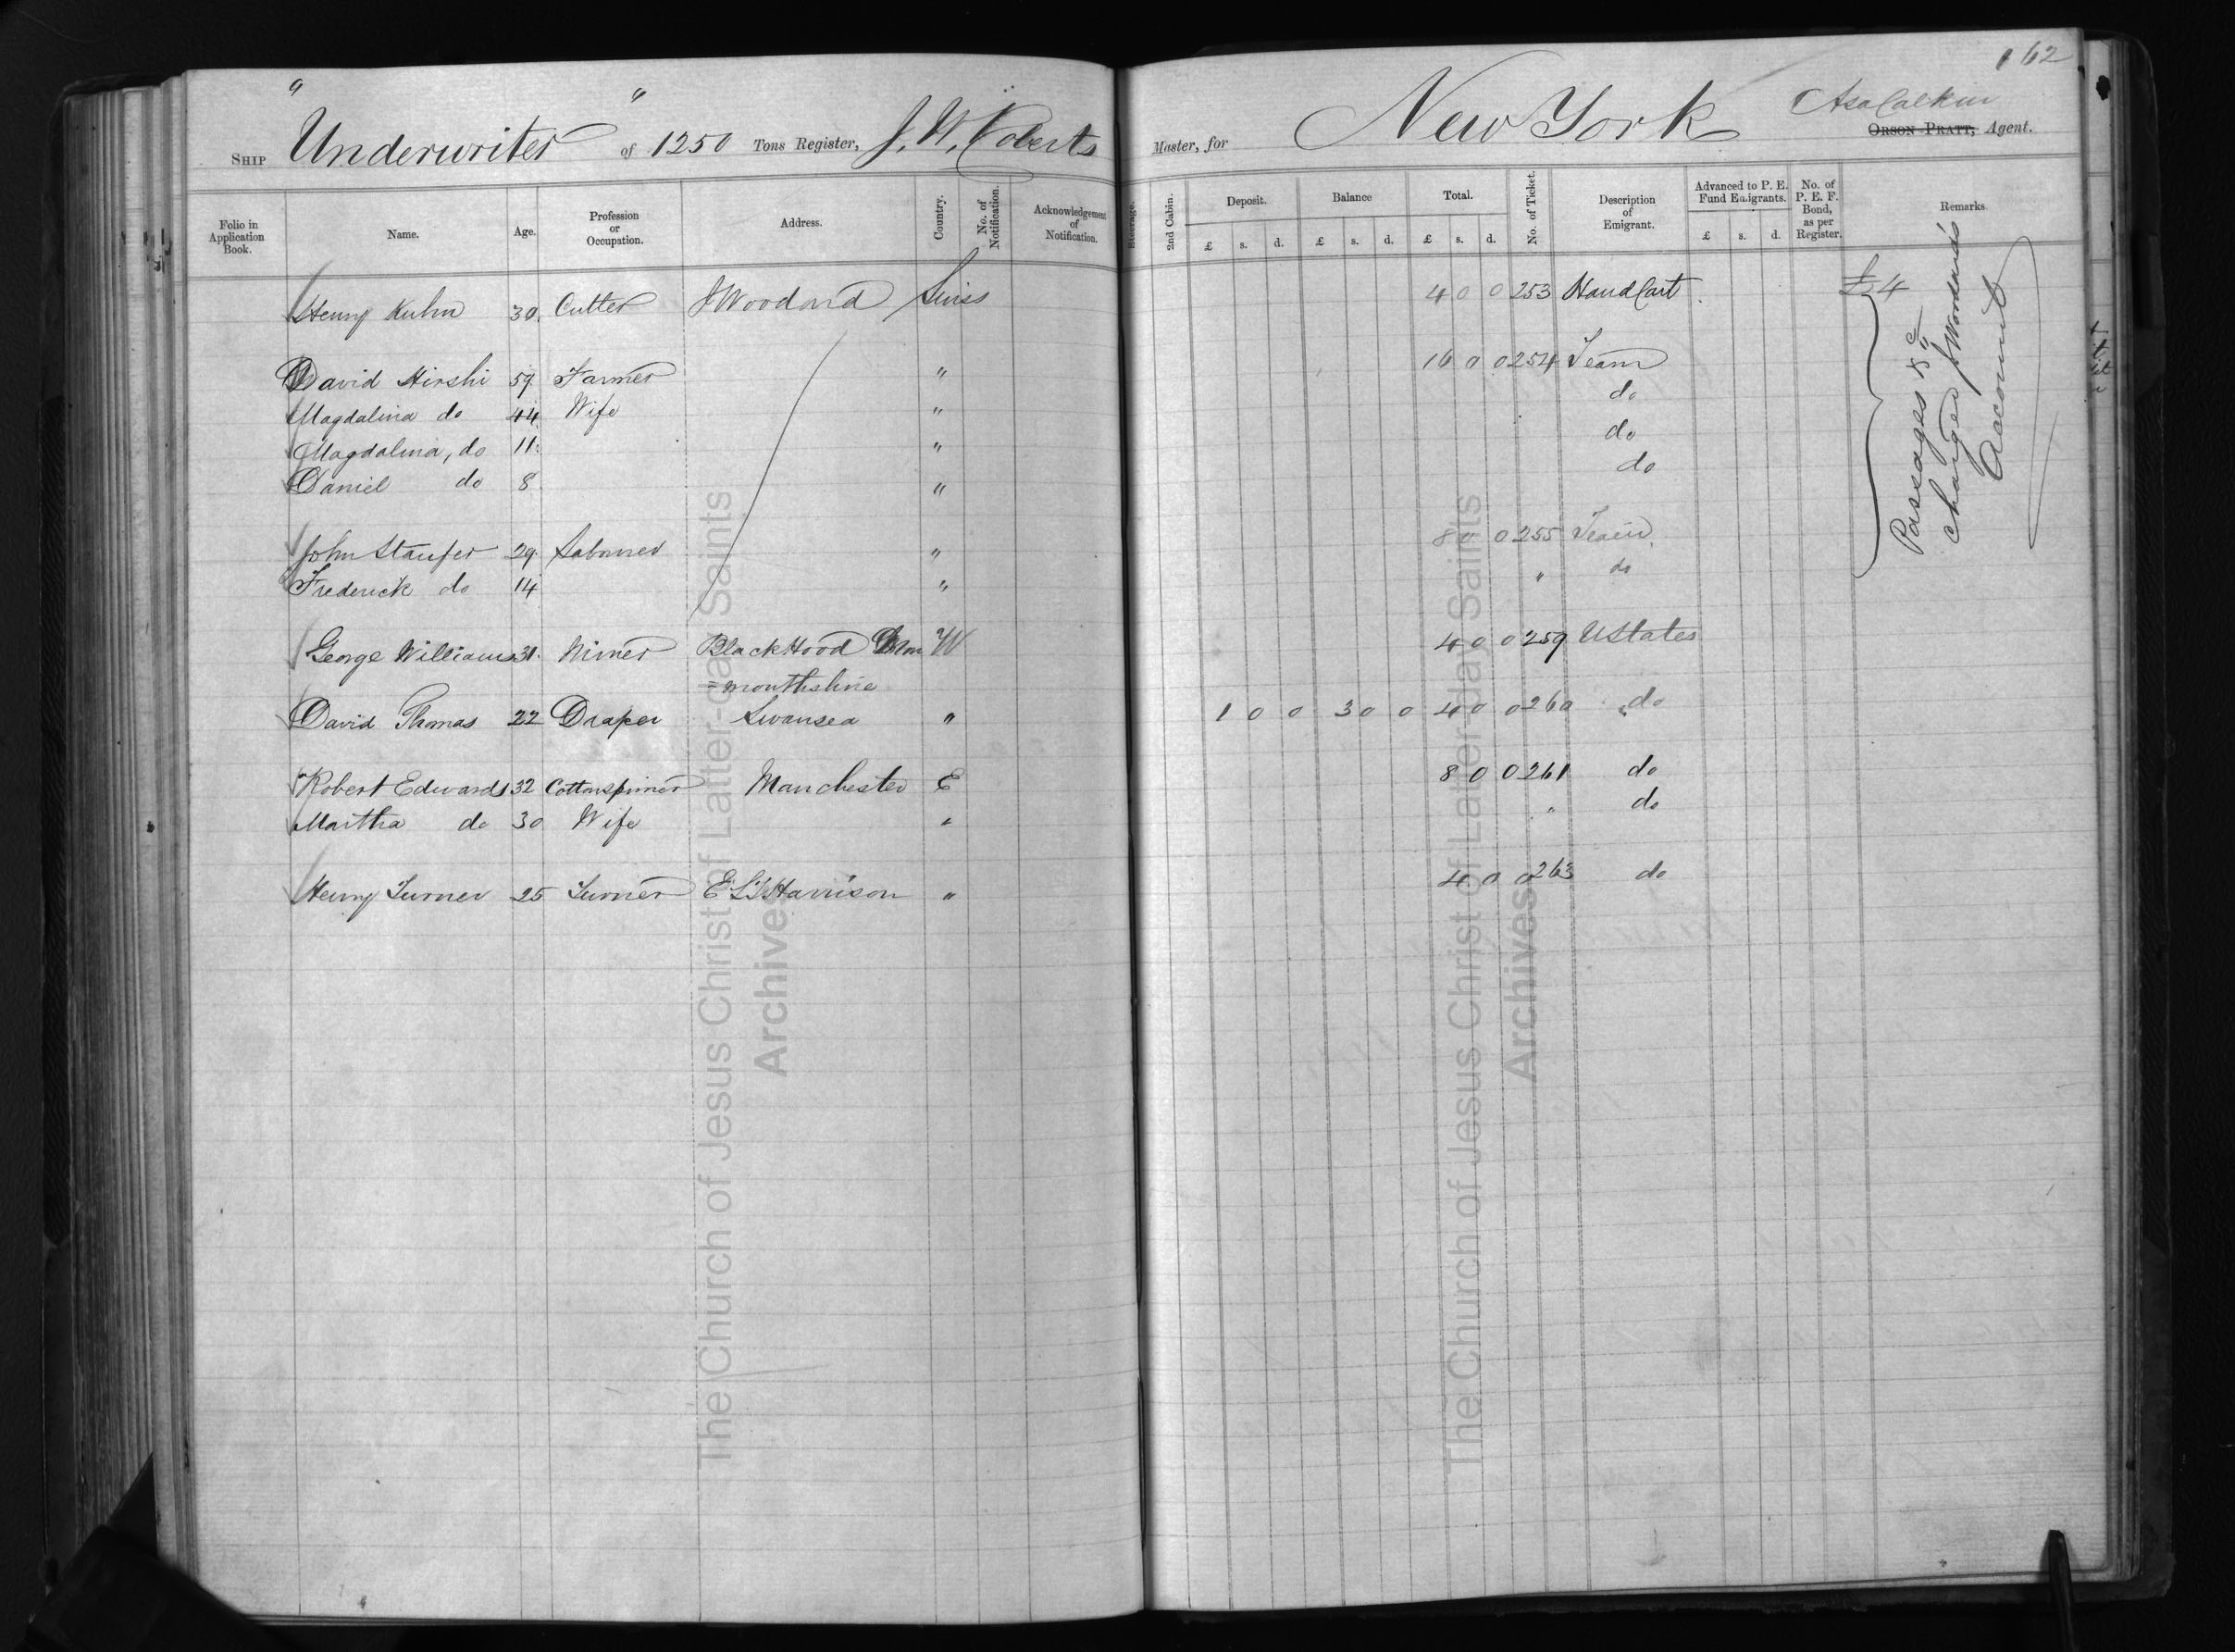 162
" Underwriter "
SHIP Underwriter of 1250 Tons Register, J. W. Roberts Master, for New York Asa Calkin ORSON PRATT, Agent.
Folio in Application Book. Name. Age. Profession or Occupation. Address. Country. No. of Notification. Acknowledgement of Notification. Steerage. 2nd Cabin. Deposit. Balance Total. No. of Ticket. Description of Emigrant. Advanced to P. E. Fund Emigrants. No. of P. E. F. Bond, as per Register. Remarks
£ s. d. £ s. d. £ s. d. £ s. d.
Henry Kuhn 30. Cutter J Woodard Swiss 4 0 0 253 Hand Cart £4
David Hirshi 59 Farmer " 16 0 0 254 Team
Magdalina do 44 Wife " do
Magdalina, do 11 " do
Daniel do 8 " do
John Staufer 29. Labourer " 8 0 0 255 Team
Frederick do 14 " " do
Passages &c
charged J Woodard's
Account
George Williams 31. Miner Black Hood Mon W 4 0 0 259 U States
=mouthshire
David Thomas 22 Draper Swansea " 1 0 0 3 0 0 4 0 0 260 do
Robert Edwards 32 Cotton spinner Manchester E 8 0 0 261 do
Martha do 30 Wife " " do
Henry Turner 25 Turner E L T Harrison " 4 0 0 263 do
The Church of Jesus Christ of Latter-day Saints
Archives
The Church of Jesus Christ of Latter-day Saints
Archives